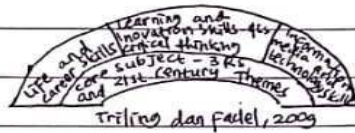 Life and
career skills
Learning and
inovation skills-4cs
critical thinking
Information
media and
technology skill
core subject - 3Rs
and 21st century Themes
Triling dan Fadel, 2009